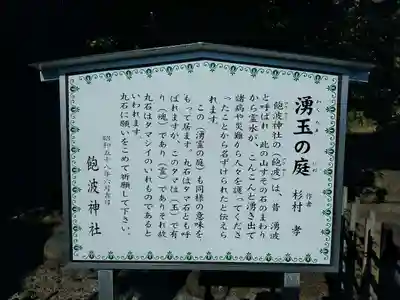 湧玉の庭
わく たま にわ
作者 杉村 孝
飽波神社の(飽波)は、昔 湧波
と呼ばれ、此の山すその石のまわり
から霊水が、こんこんと湧き出て
諸病や災難から人々を護ってくださ
ったことから名ずけられたと伝えら
れます。
この(湧霊の庭)も同様の意味を
もって居ます。丸石はタマ石とも呼
ばれますが、このタマは(玉)で有
り(魂)であり(霊)でありそれ故
丸石はタマシイのいれものであると
いわれます。
丸石に願いをこめて祈願して下さい。
昭和五十八年六月吉日
飽波神社